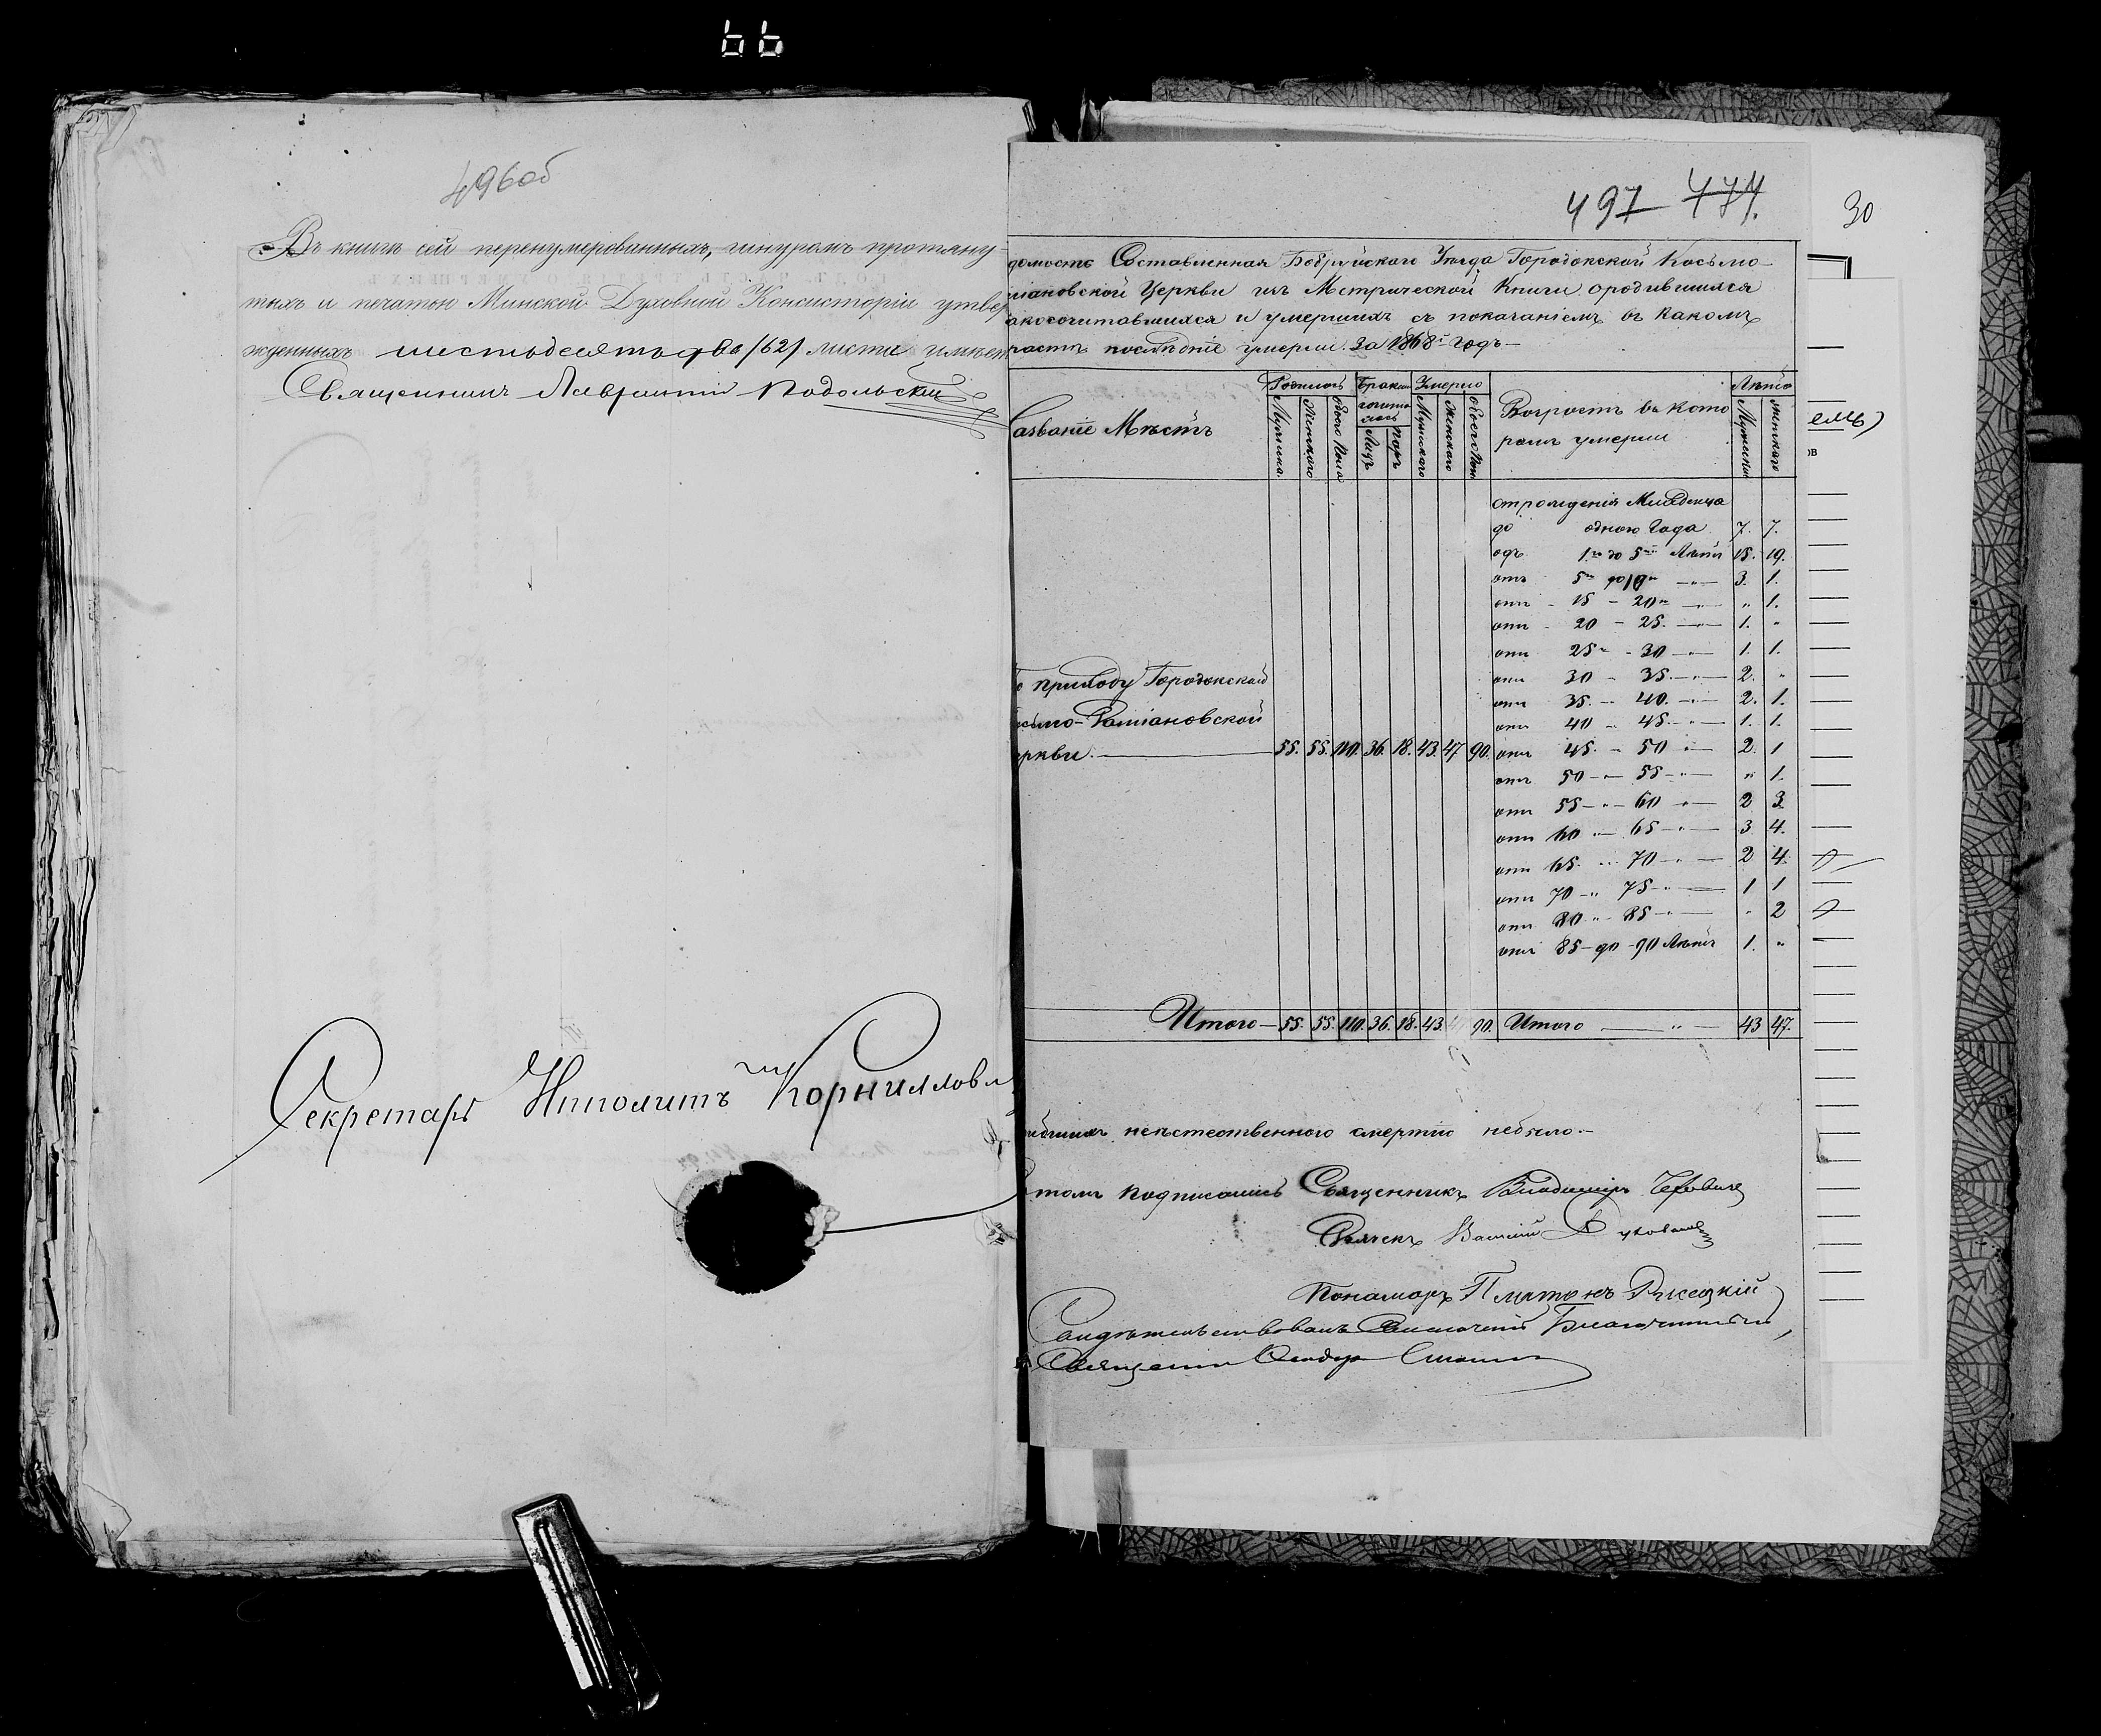 66
496об
Въ книгѣ сей перенумерованныхъ, шнуромъ протяну-
тыхъ и печатью Минской Духовной Консисторіи утвер
жденныхъ шестьдесятъ два /62/ листа имѣет
Священникъ Лаврентій Подольскій
Секретарь Ипполитъ Корниллов
497 477.
30
домость Составленная Бобруйскаго Уѣзда Городокской Косьмо-
міановской Церкви изъ Метрической Книги ородившихся
акосочитавшихся и умершихъ съ показаніемъ въ какомъ
растѣ послѣдніе умерли за 1868й годъ—
азваніе Мѣстъ
Родилось
Мужеска.
Женскаго
Обоего Пола
Бракомъ сочита лось
Лицъ
паръ
Умерло
Мужескаго
Женскаго
Обоего Пол
Возрастъ въ кото
ромъ умерли
Лѣта
Мужескаго
Женскаго
отрожденія Младенца
до одного Года 7. 7.
одъ 1го до 5ти Лѣтъ 15. 19.
отъ 5ти до 10ти —„— 3. 1.
отъ - 15 - 20ти —„— „ 1.
отъ - 20 - 25. —„— 1. „
отъ 25ти - 30 —„— 1. 1.
отъ 30 - 35. —„— 2. „
отъ 35. - 40. —„— 2. 1.
отъ 40 - 45. —„— 1. 1.
о приходу Городокской
сьмо-Даміановской
еркви. — 55. 55. 110. 36. 18. 43. 47 90. отъ 45. - 50 —„— 2. 1
отъ 50 —„— 55 —„— „ 1.
отъ 55 —„— 60 —„— 2 3.
отъ 60 „— 65 —„— 3. 4.
отъ 65. ... 70 —„— 2 4.
отъ 70 —„ 75 —„— 1 1
отъ 80 „— 85 —„— „ 2
отъ 85 — до - 90 Лѣтъ 1. „
Итого — 55. 55. 110. 36. 18. 43. 47 90. Итого —„— 43 47.
неестественного смертію небыло.—
томъ подписались Священникъ Владиміръ
Дьячекъ
Пономарь Платонъ
Свидѣтельствовалъ Благочинный,
Священникъ
емъ)
ов